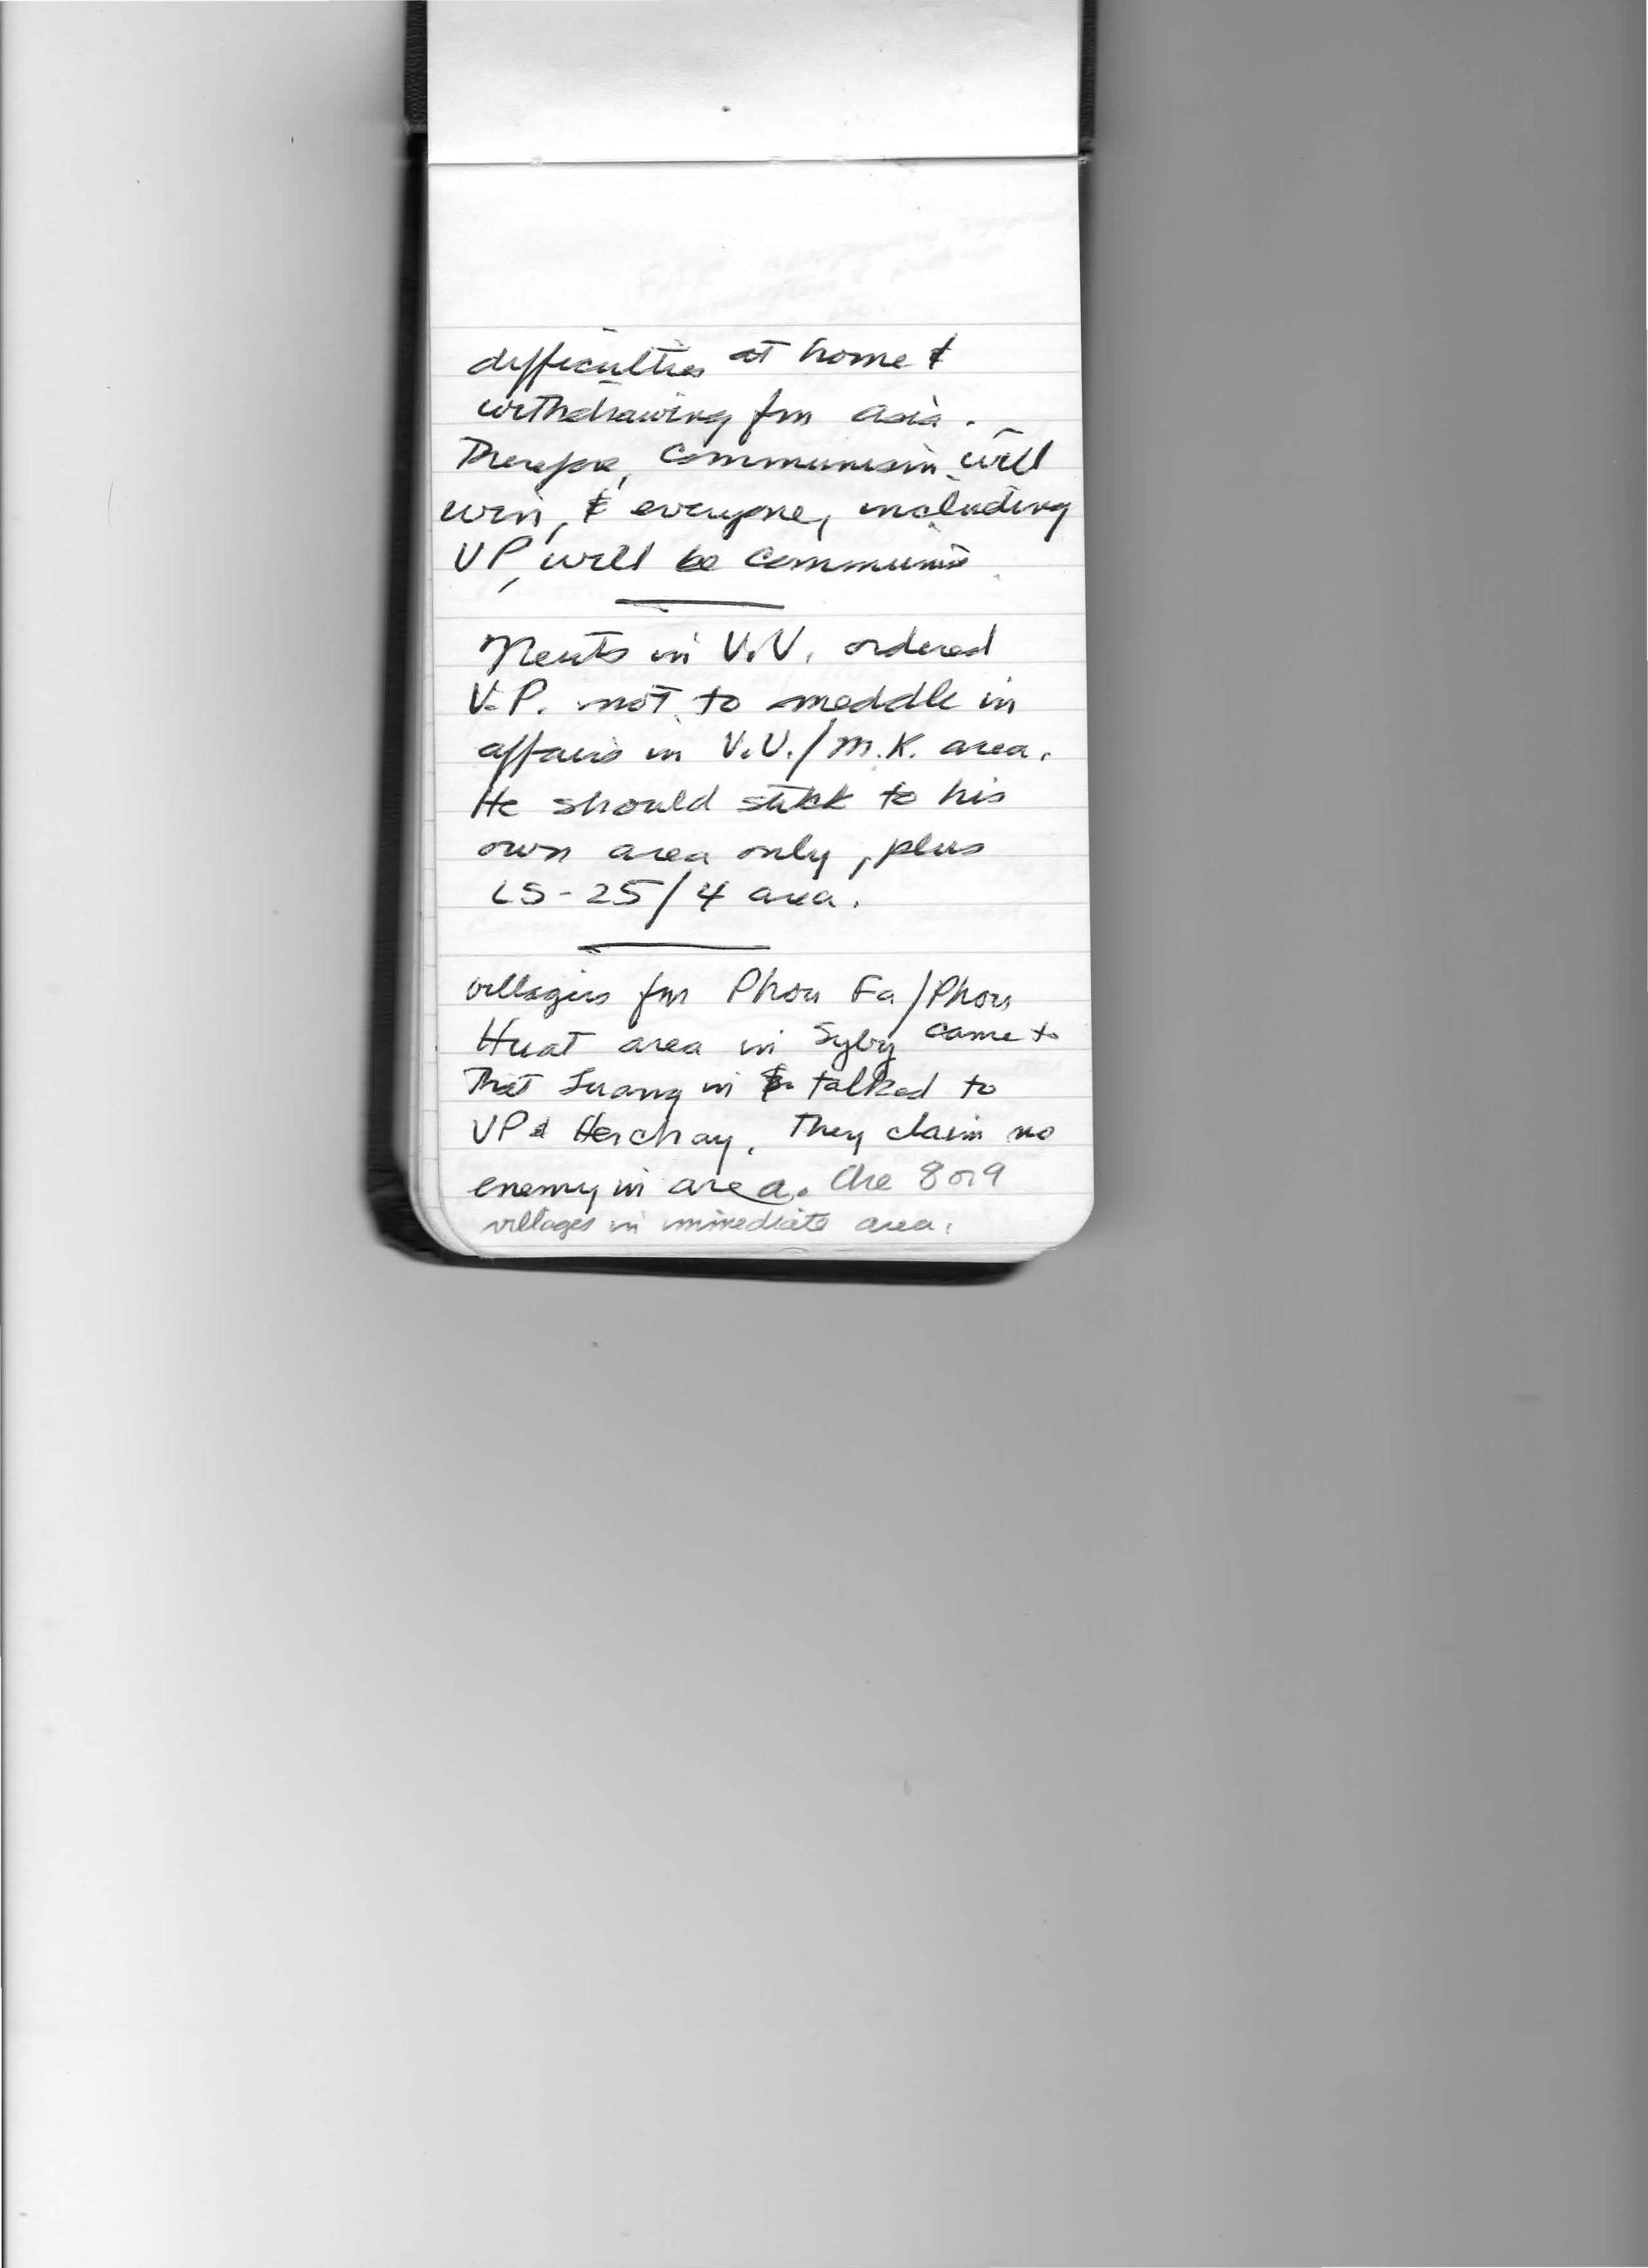 difficulties at home &
withdrawing fm Asia.
Therefore, Communism will
win, & everyone, including
VP, will be Communist.
Neuts in V.V. ordered
V.P. not to meddle in
affairs in V.V./M.K. area.
He should stick to his
own area only, plus
LS-25/4 area.
villagers fm Phou Fa/Phou
Huat area in Syby came to
That Luang in & talked to
VP & Herchay. They claim no
enemy in area. Are 8 or 9
villages in immediate area.